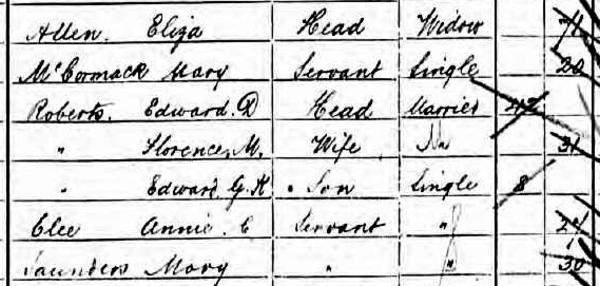 Allen. Eliza Head Widow 71
McCormack Mary Servant Single 20
Roberts. Edward. D Head Married 42
" Florence, M. Wife Do 31
" Edward G. K. Son Single 8
Clee Annie. C Servant " 27
Saunders Mary " " 30